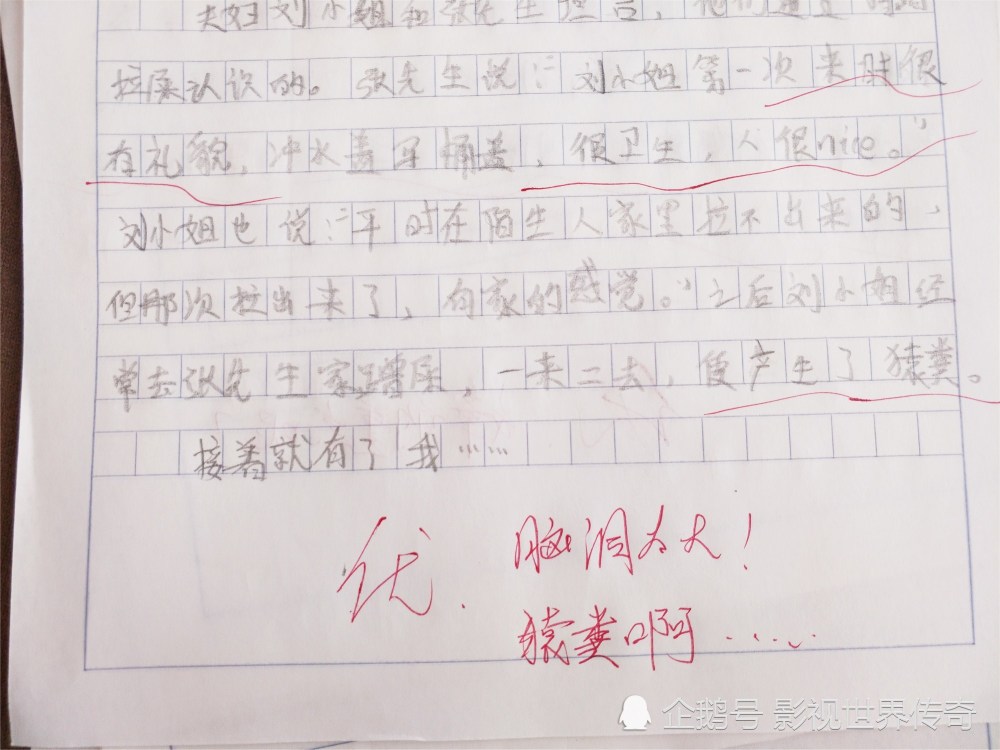 夫妇刘小姐和张先生坦言，他们通过
拉屎认识的。张先生说：“刘小姐第一次来时很
有礼貌，冲水盖马桶盖，很卫生，人很nice。”
刘小姐也说：“平时在陌生人家里拉不出来的，
但那次拉出来了，有家的感觉。”之后刘小姐经
常去张先生家蹭屎，一来二去，便产生了猿粪。
接着就有了我……
优. 脑洞太大！
猿粪啊……
企鹅号 影视世界传奇